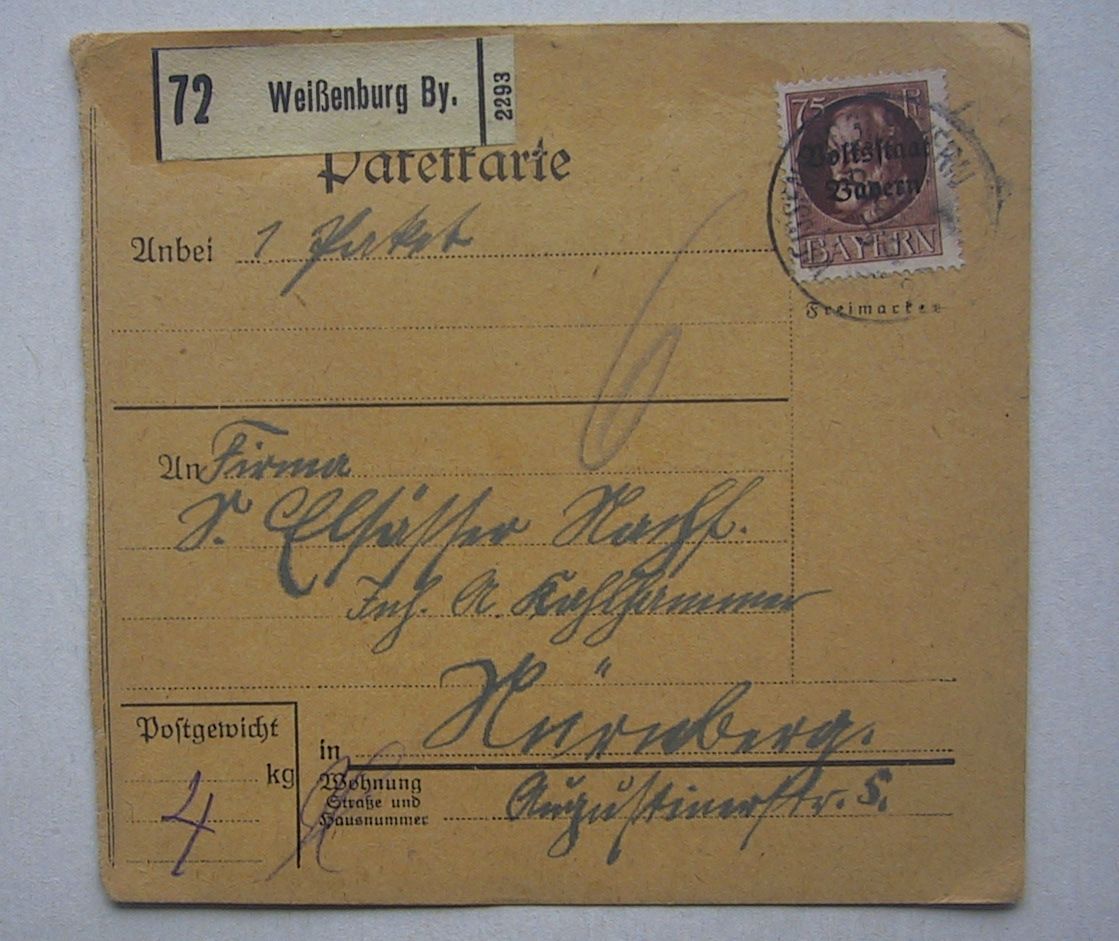 72 Weißenburg By. 2293
Paketkarte
75 P
Volksstaat
Bayern
BAYERN
Freimarken
Anbei 1 Paket
6
An Firma
S. Elsässer Nachf.
Inh. A. Kohlhammer
Postgewicht
kg
4
in Nürnberg.
Wohnung
Straße und
Hausnummer
Augustinerstr. 5.